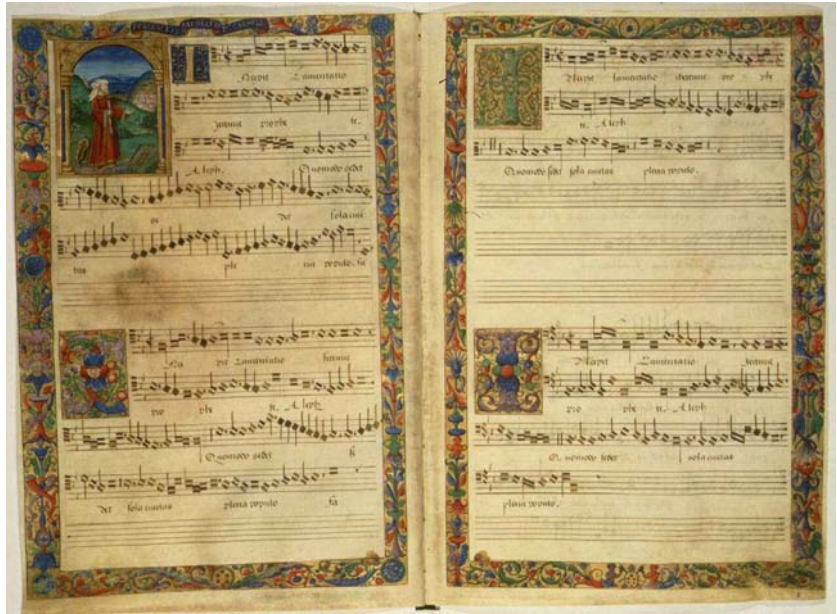 I
Ncipit Lamentatio
Jeremie prophe te.
Aleph. Quomodo sedet
det sola civi
tas ple na populo. fa
Nci pit Lamentatio Jeremie
pro phe te. Aleph
Quomodo sedet se
det sola civitas plena populo fa
I
Ncipit lamentatio Jeremie pro phe
te. Aleph
Quomodo sedet sola civitas plena populo.
I
Ncipit Lamentatio Jeremie
pro phe te. Aleph
Quomodo sedet sola civitas
plena populo.